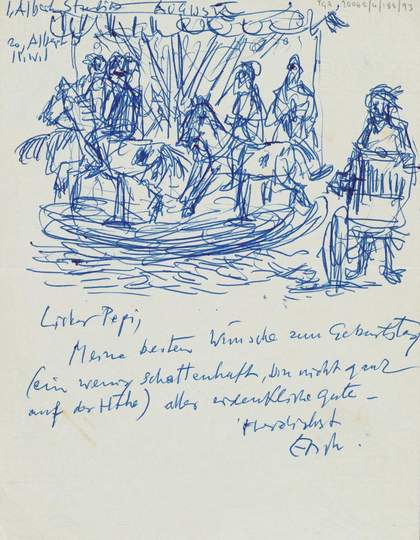 1, Albert Studios
AUGUST
TGA 20042/4/188/93
20, Albert
Lieber Pepi,
Meine besten Wünsche zum Geburtstag
(ein wenig schattenhaft, bin nicht ganz
auf der Höhe) alles erdenkliche Gute –
Herzlichst